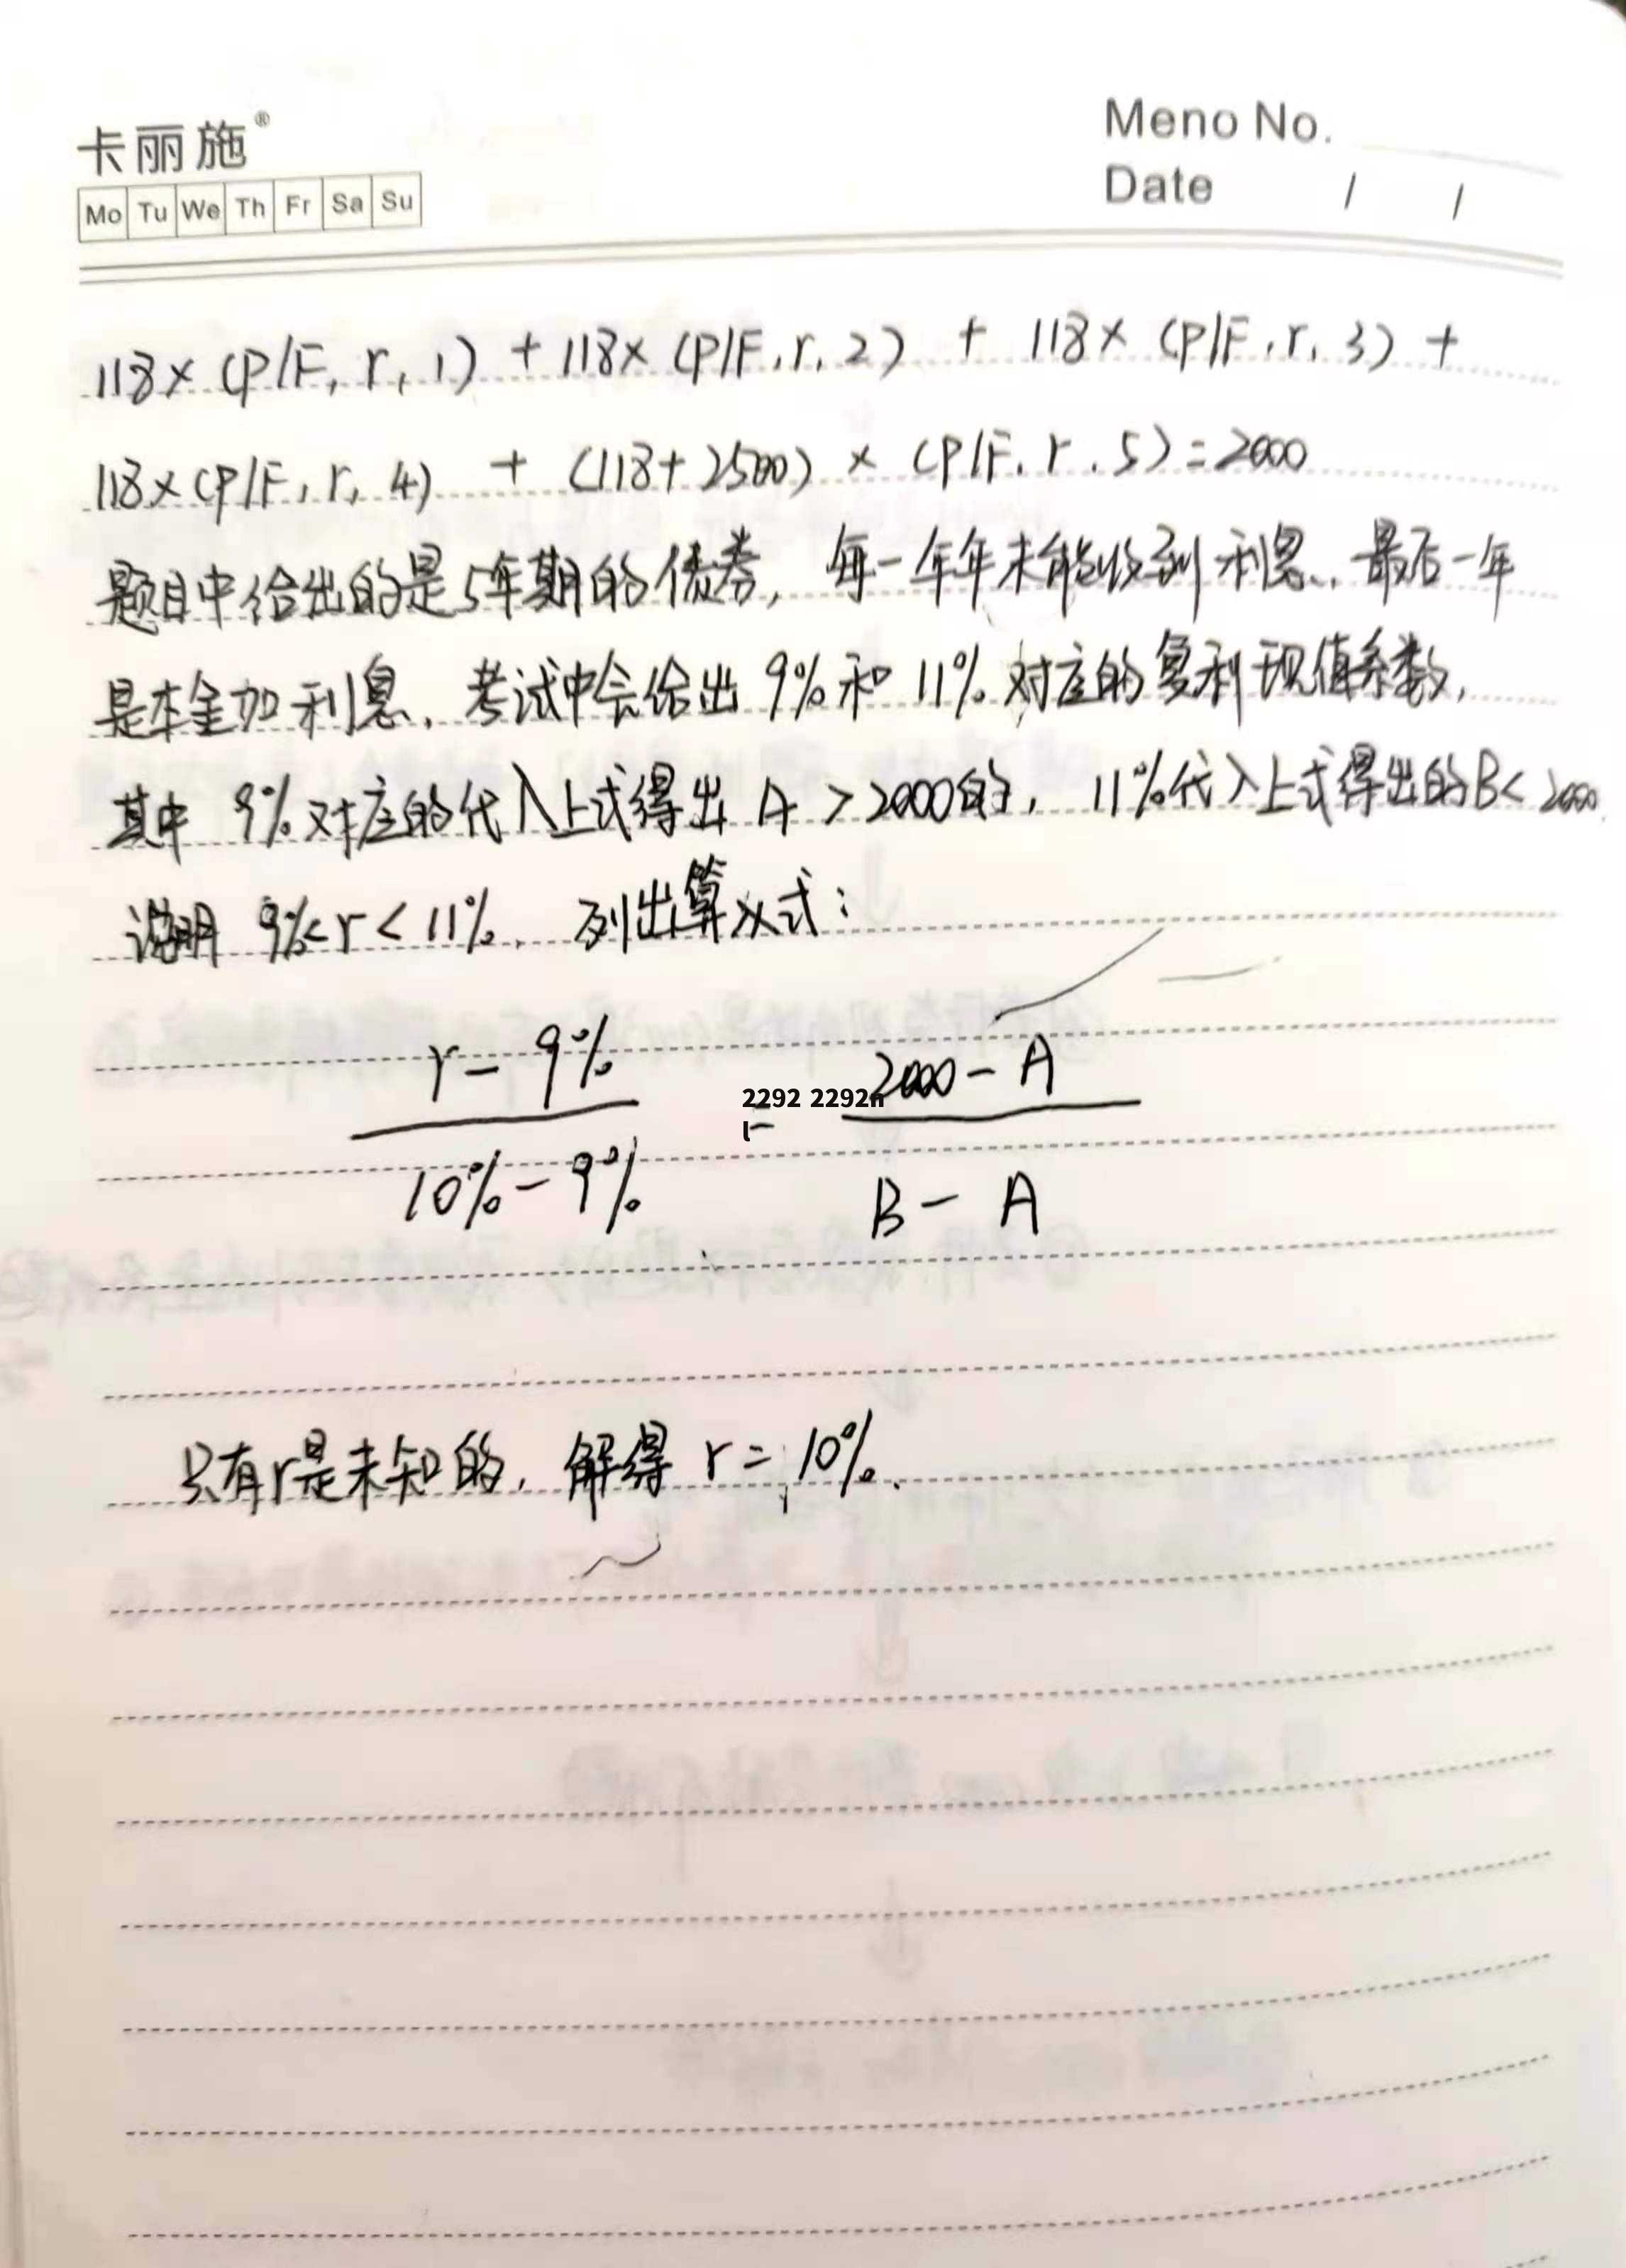 卡丽施®
Mo Tu We Th Fr Sa Su
Meno No.
Date / /
118×(P/F, r, 1) + 118×(P/F, r, 2) + 118×(P/F, r, 3) +
118×(P/F, r, 4) + (118+2500)×(P/F, r, 5)=2000
题目中给出的是5年期的债券, 每一年年末能收到利息, 最后一年
是本金加利息, 考试中会给出 9%和 11%对应的复利现值系数,
其中 9%对应的代入上式得出 A >2000的, 11%代入上式得出的B< 2000.
说明 9%< r < 11%, 列出算式:
r - 9%
2000 - A
2292 2292n
l
=
10% - 9%
B - A
只有r是未知的, 解得 r = 10%.